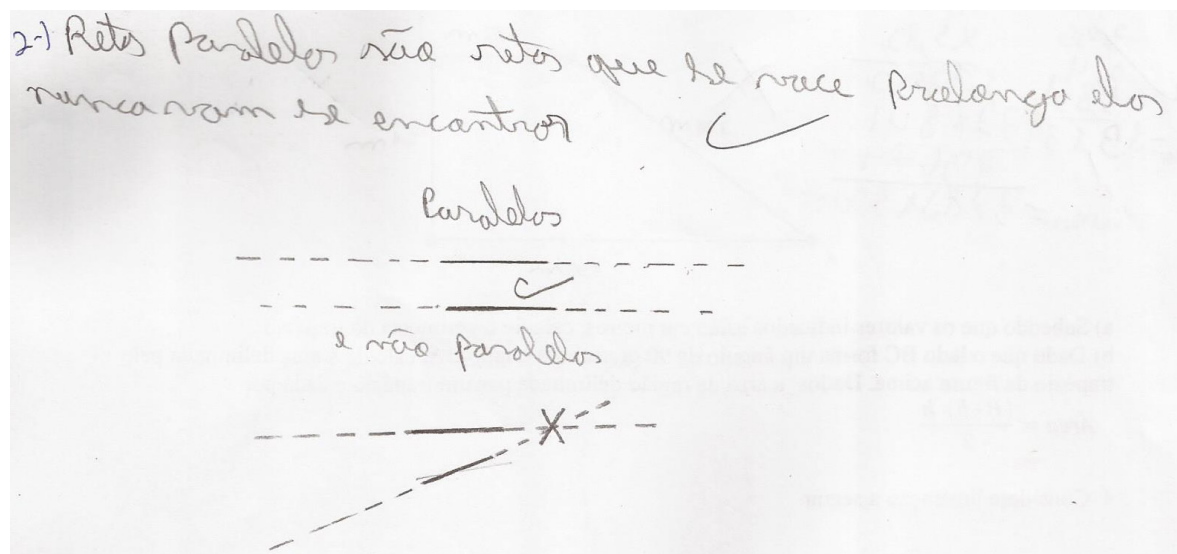 2-) Retas Paralelas são retas que se voce Prolonga elas
nunca vam se encontrar
Paralelas
e não paralelas